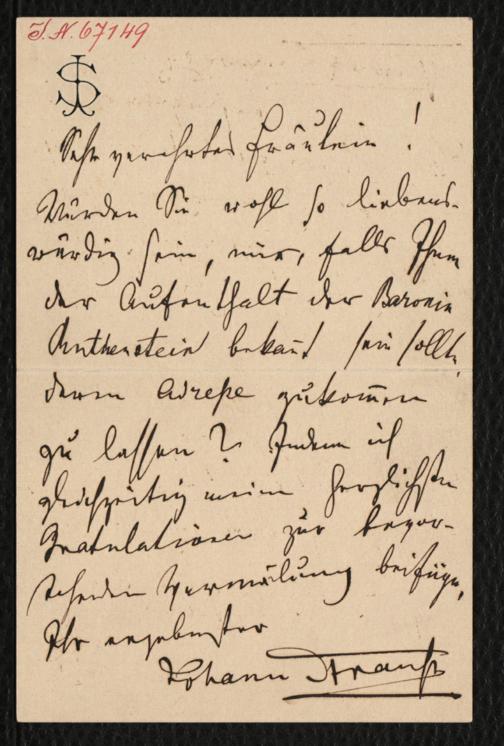 I.N. 67149
JS
Sehr verehrtes Fräulein !
Würden Sie wohl so liebens-
würdig sein, mir, falls Ihnen
der Aufenthalt der Baronin
Ruthenstein bekan̄t sein sollte,
deren Adreße zukom̄en
zu lassen? Indem ich
gleichzeitig meine herzlichsten
Gratulationen zur bevor-
stehenden Vermälung beifüge,
Ihr ergebenster
Johann Strauß